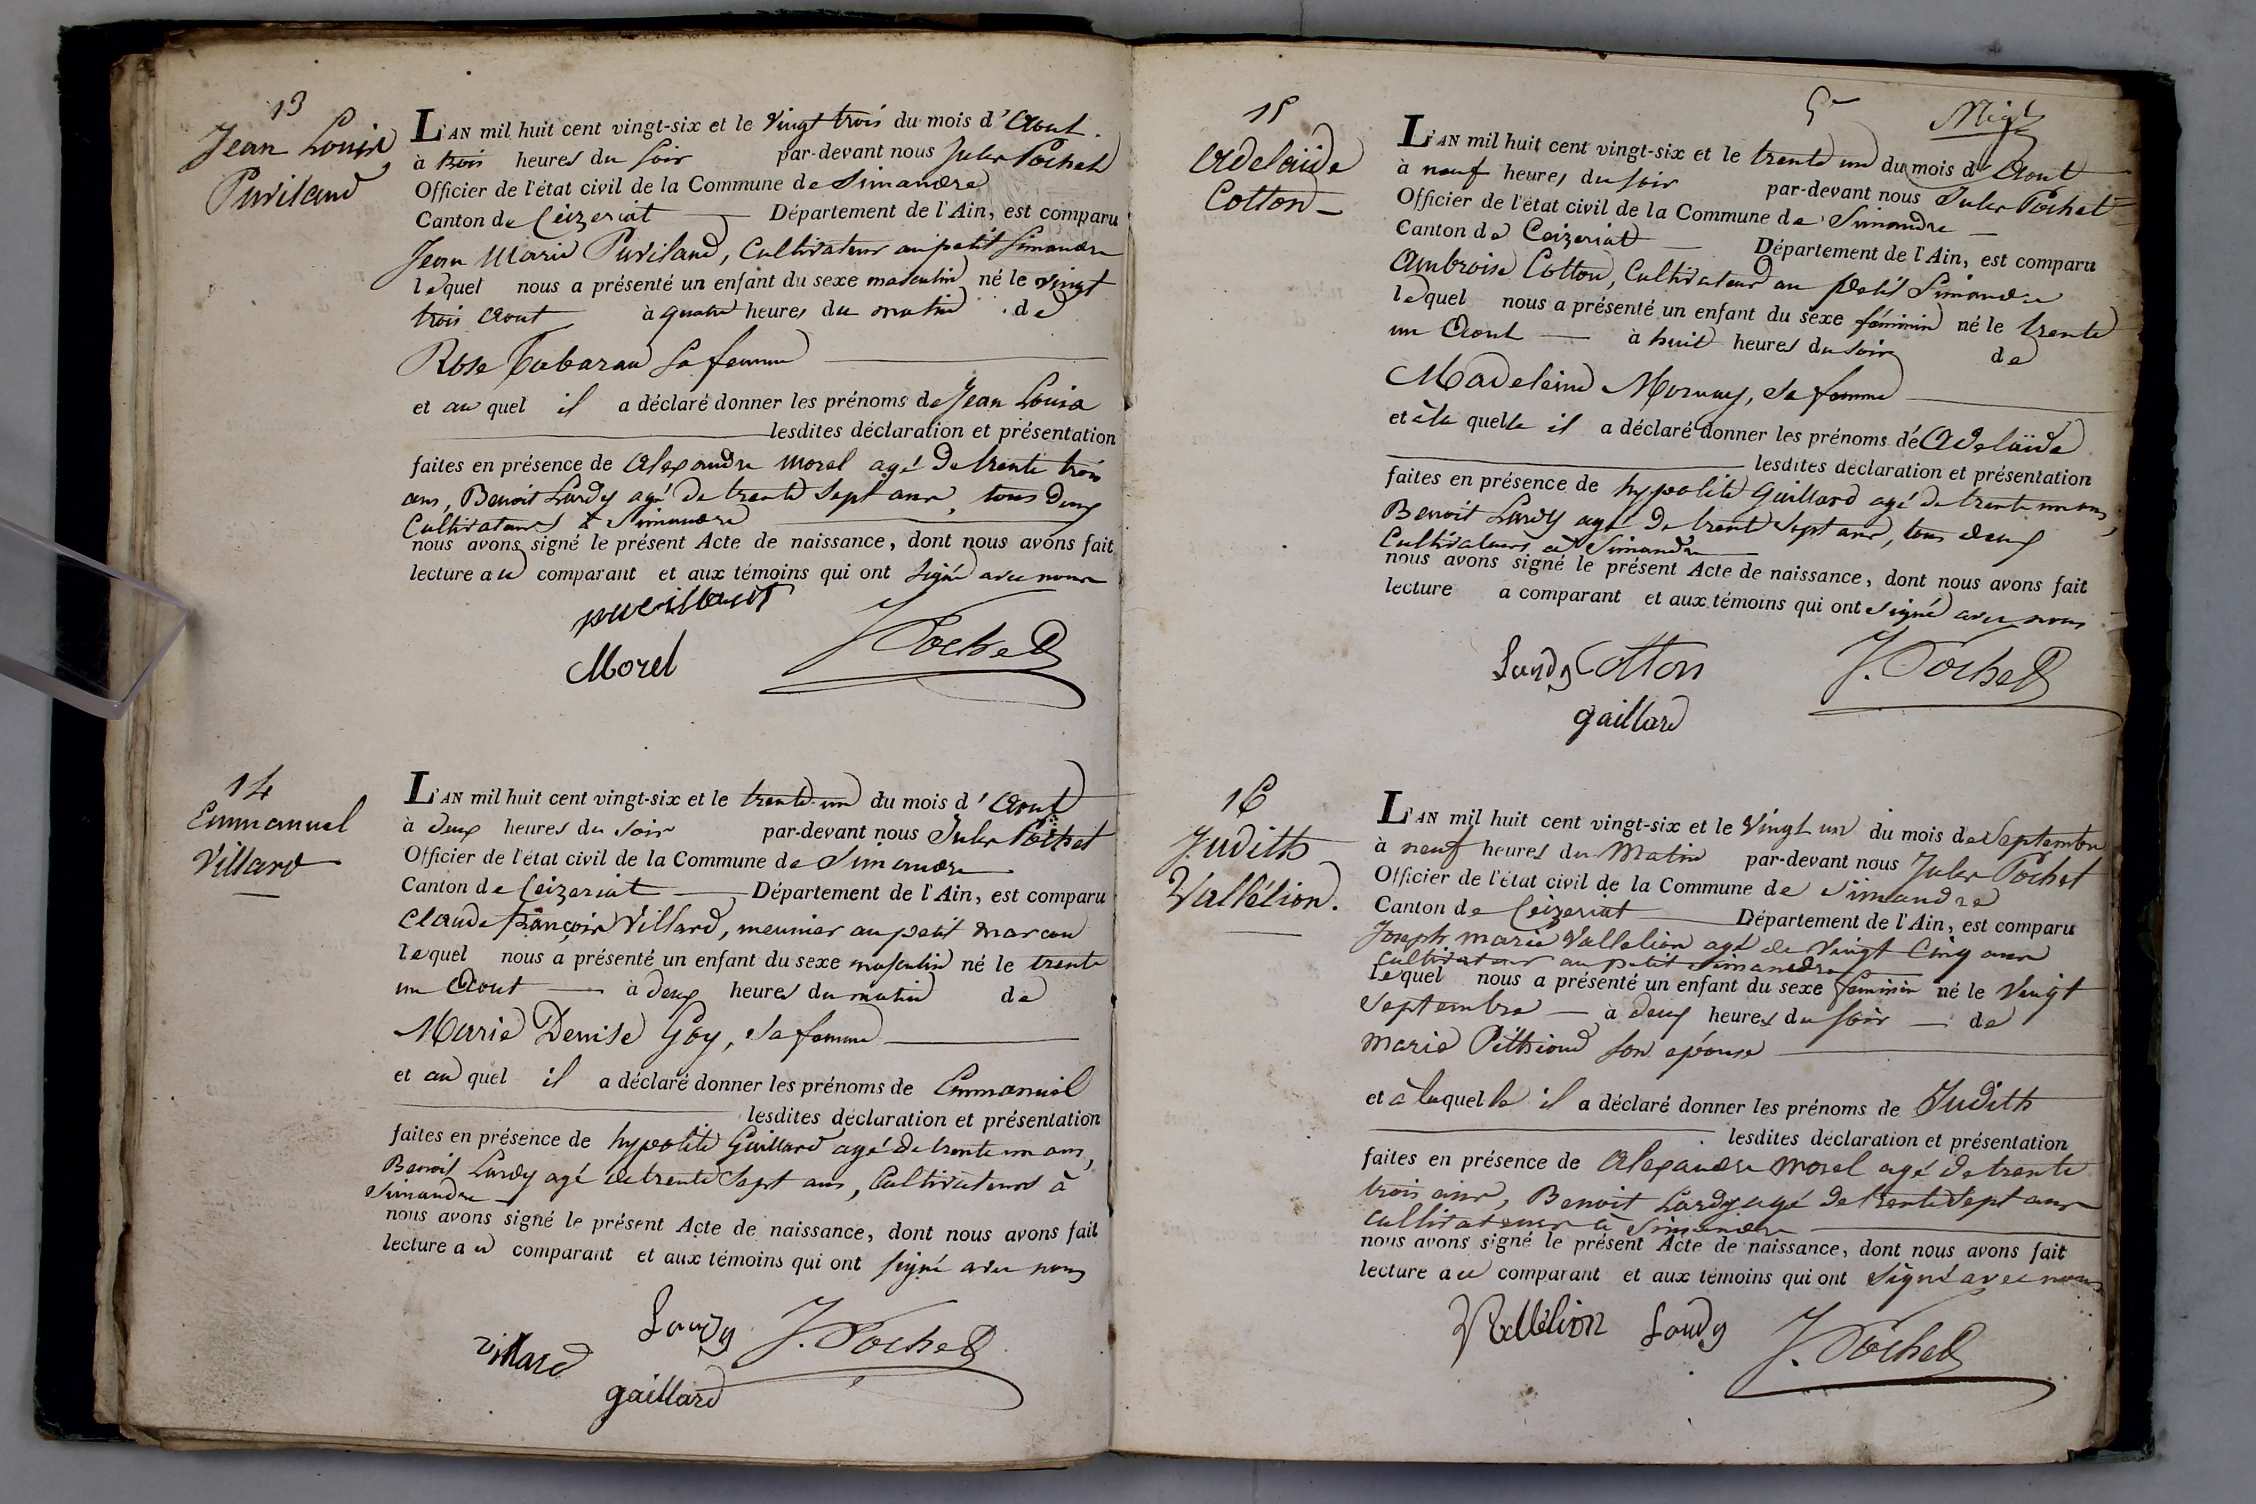 13
Jean Louis
Puviland
L'AN mil huit cent vingt-six et le vingt trois du mois d'Aout.
à trois heures du soir par-devant nous Jules Pochet
Officier de l'état civil de la Commune de Simandre
Canton de Ceizeriat Département de l'Ain, est comparu
Jean Marie Puviland, Cultivateur au petit Simandre
lequel nous a présenté un enfant du sexe masculin né le vingt
trois Aout à quatre heures du matin de
Rose Tabaran sa femme
et au quel il a déclaré donner les prénoms de Jean Louis
lesdites déclaration et présentation
faites en présence de Alexandre Morel agé de trente trois
ans, Benoit Lardy agé de trente sept ans, tous deux
Cultivateurs à Simandre
nous avons signé le présent Acte de naissance, dont nous avons fait
lecture au comparant et aux témoins qui ont signé avec nous
puvillandt
Morel J Pochet
14
Emmanuel
Villard
L'AN mil huit cent vingt-six et le trente-un du mois d'Aout
à deux heures du soir par-devant nous Jules Pochet
Officier de l'état civil de la Commune de Simandre
Canton de Ceizeriat Département de l'Ain, est comparu
Claude françois Villard, meunier au petit marcou
lequel nous a présenté un enfant du sexe masculin né le trente
un Aout à deux heures du matin de
Marie Denise Goy, sa femme
et au quel il a déclaré donner les prénoms de Emmanuel
lesdites déclaration et présentation
faites en présence de hypolite Guillard agé de trente un ans,
Benoit Lardy agé de trente sept ans, Cultivateurs à
Simandre
nous avons signé le présent Acte de naissance, dont nous avons fait
lecture au comparant et aux témoins qui ont signé avec nous
Lardy J. Pochet
villard
gaillard
15
Adelaïde
Cotton
L'AN mil huit cent vingt-six et le trente un du mois d'Aout
à neuf heures du soir par-devant nous Jules Pochet
Officier de l'état civil de la Commune de Simandre
Canton de Ceizeriat Département de l'Ain, est comparu
Ambroise Cotton, Cultivateur au petit Simandre
lequel nous a présenté un enfant du sexe féminin né le trente
un Aout à huit heures du soir de
Madeleine Mornay, sa femme
et à la quelle il a déclaré donner les prénoms de Adelaïde
lesdites déclaration et présentation
faites en présence de hypolite Guillard agé de trente un ans,
Benoit Lardy agé de trente sept ans, tous deux
Cultivateurs à Simandre
nous avons signé le présent Acte de naissance, dont nous avons fait
lecture a comparant et aux témoins qui ont signé avec nous
Lardy Cotton J. Pochet
gaillard
16
Judith
Vallélion.
L'AN mil huit cent vingt-six et le vingt un du mois de Septembre
à neuf heures du Matin par-devant nous Jules Pochet
Officier de l'état civil de la Commune de Simandre
Canton de Ceizeriat Département de l'Ain, est comparu
Joseph marie Vallelion agé de vingt cinq ans
cultivateur au petit Simandre
lequel nous a présenté un enfant du sexe feminin né le vingt
Septembre à deux heures du soir de
marie Péthioud son épouse
et à laquelle il a déclaré donner les prénoms de Judith
lesdites déclaration et présentation
faites en présence de Alexandre morel agé de trente
trois ans, Benoit Lardy agé de trente sept ans
cultivateurs à Simandre
nous avons signé le présent Acte de naissance, dont nous avons fait
lecture au comparant et aux témoins qui ont signé avec nous
Vallélion Lardy J. Pochet